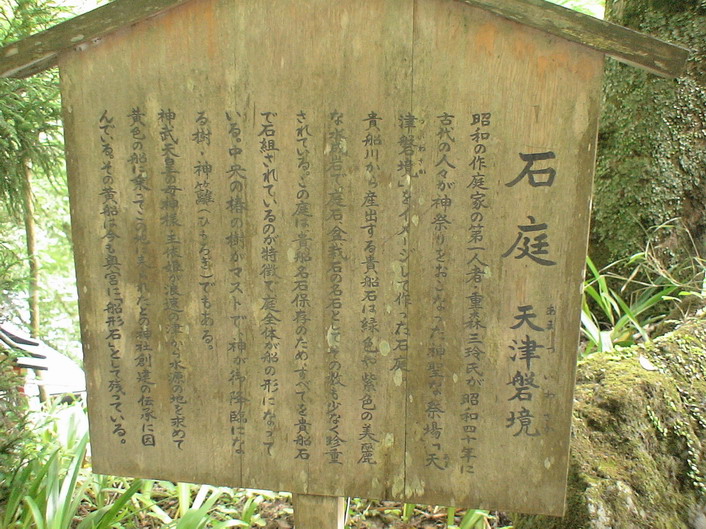 石庭 天津磐境
あまついわさか
昭和の作庭家の第一人者・重森三玲氏が昭和四十年に
古代の人々が神祭りをおこなった神聖な祭場「天
津磐境」をイメージして作った石庭
つついわさか
貴船川から産出する貴船石は緑色や紫色の美麗
な水成岩で、庭石、盆栽石の名石としてその数も少なく珍重
されている。この庭は貴船名石保存のためすべてを貴船石
で石組されているのが特徴で庭全体が船の形になって
いる。中央の椿の樹がマストで、神が御降臨にな
る樹・神籬(ひもろぎ)でもある。
神武天皇の母神様・玉依姫が浪速の津から水源の地を求めて
黄色の船に乗ってこの地に来られたとの神社創建の伝承に因
んでいる。その黄船は今も奥宮に「船形石」として残っている。